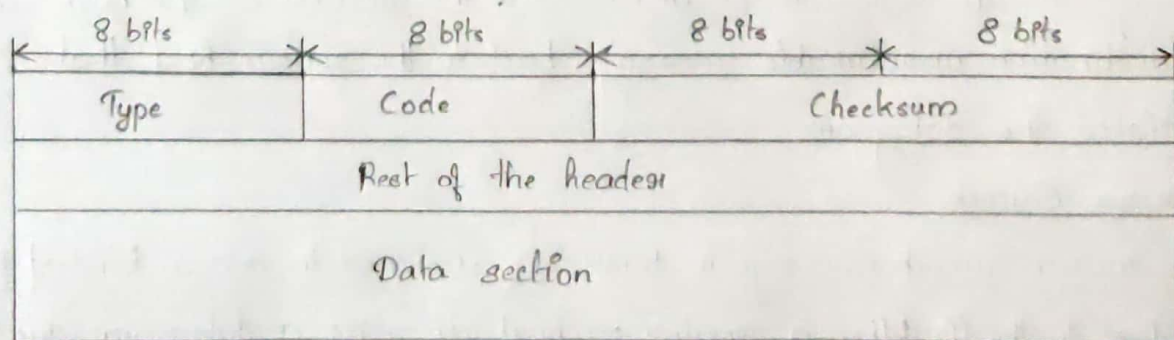 8 bits 8 bits 8 bits 8 bits
Type Code Checksum
Rest of the header
Data section